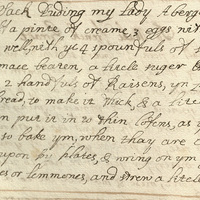 lack Puding my Lady Aberg
a pinte of creame, 3 eggs
well, with ye 4 spoonfuls of
mace beaten, a litle suger
2 handfuls of Raisens, yn
read, to make it thick, & a lit
n put it in 20 thin cofens, as y
so bake ym, when thay are
upon py plates, & wring on ym
es or lemmones, and strew a litle